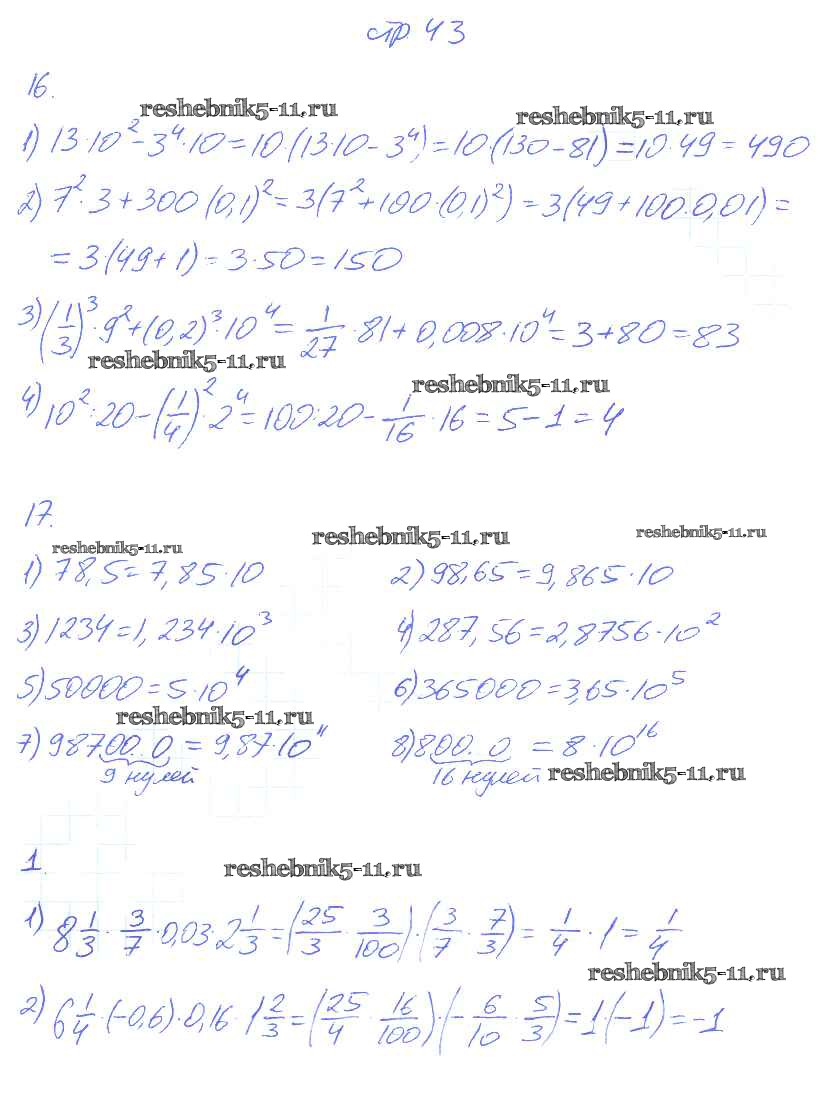 стр. 43
16.
reshebnik5-11.ru
reshebnik5-11.ru
1) 13·10² - 3⁴·10 = 10·(13·10 - 3⁴) = 10·(130 - 81) = 10·49 = 490
2) 7²·3 + 300·(0,1)² = 3(7² + 100·(0,1)²) = 3(49 + 100·0,01) =
= 3(49 + 1) = 3·50 = 150
3) (1/3)³·9² + (0,2)³·10⁴ = 1/27·81 + 0,008·10⁴ = 3 + 80 = 83
reshebnik5-11.ru
reshebnik5-11.ru
4) 10²:20 - (1/4)²·2⁴ = 100:20 - 1/16·16 = 5 - 1 = 4
17.
reshebnik5-11.ru
reshebnik5-11.ru
reshebnik5-11.ru
1) 78,5 = 7,85·10 2) 98,65 = 9,865·10
3) 1234 = 1,234·10³ 4) 287,56 = 2,8756·10²
5) 50000 = 5·10⁴ 6) 365000 = 3,65·10⁵
reshebnik5-11.ru
7) 98700..0 = 9,87·10¹¹ 8) 800..0 = 8·10¹⁶
9 нулей 16 нулей reshebnik5-11.ru
1
reshebnik5-11.ru
1) 8 1/3 · 3/7 · 0,03 · 2 1/3 = (25/3 · 3/100)·(3/7 · 7/3) = 1/4 · 1 = 1/4
reshebnik5-11.ru
2) 6 1/4 · (-0,6) · 0,16 · 1 2/3 = (25/4 · 16/100)·(-6/10 · 5/3) = 1·(-1) = -1